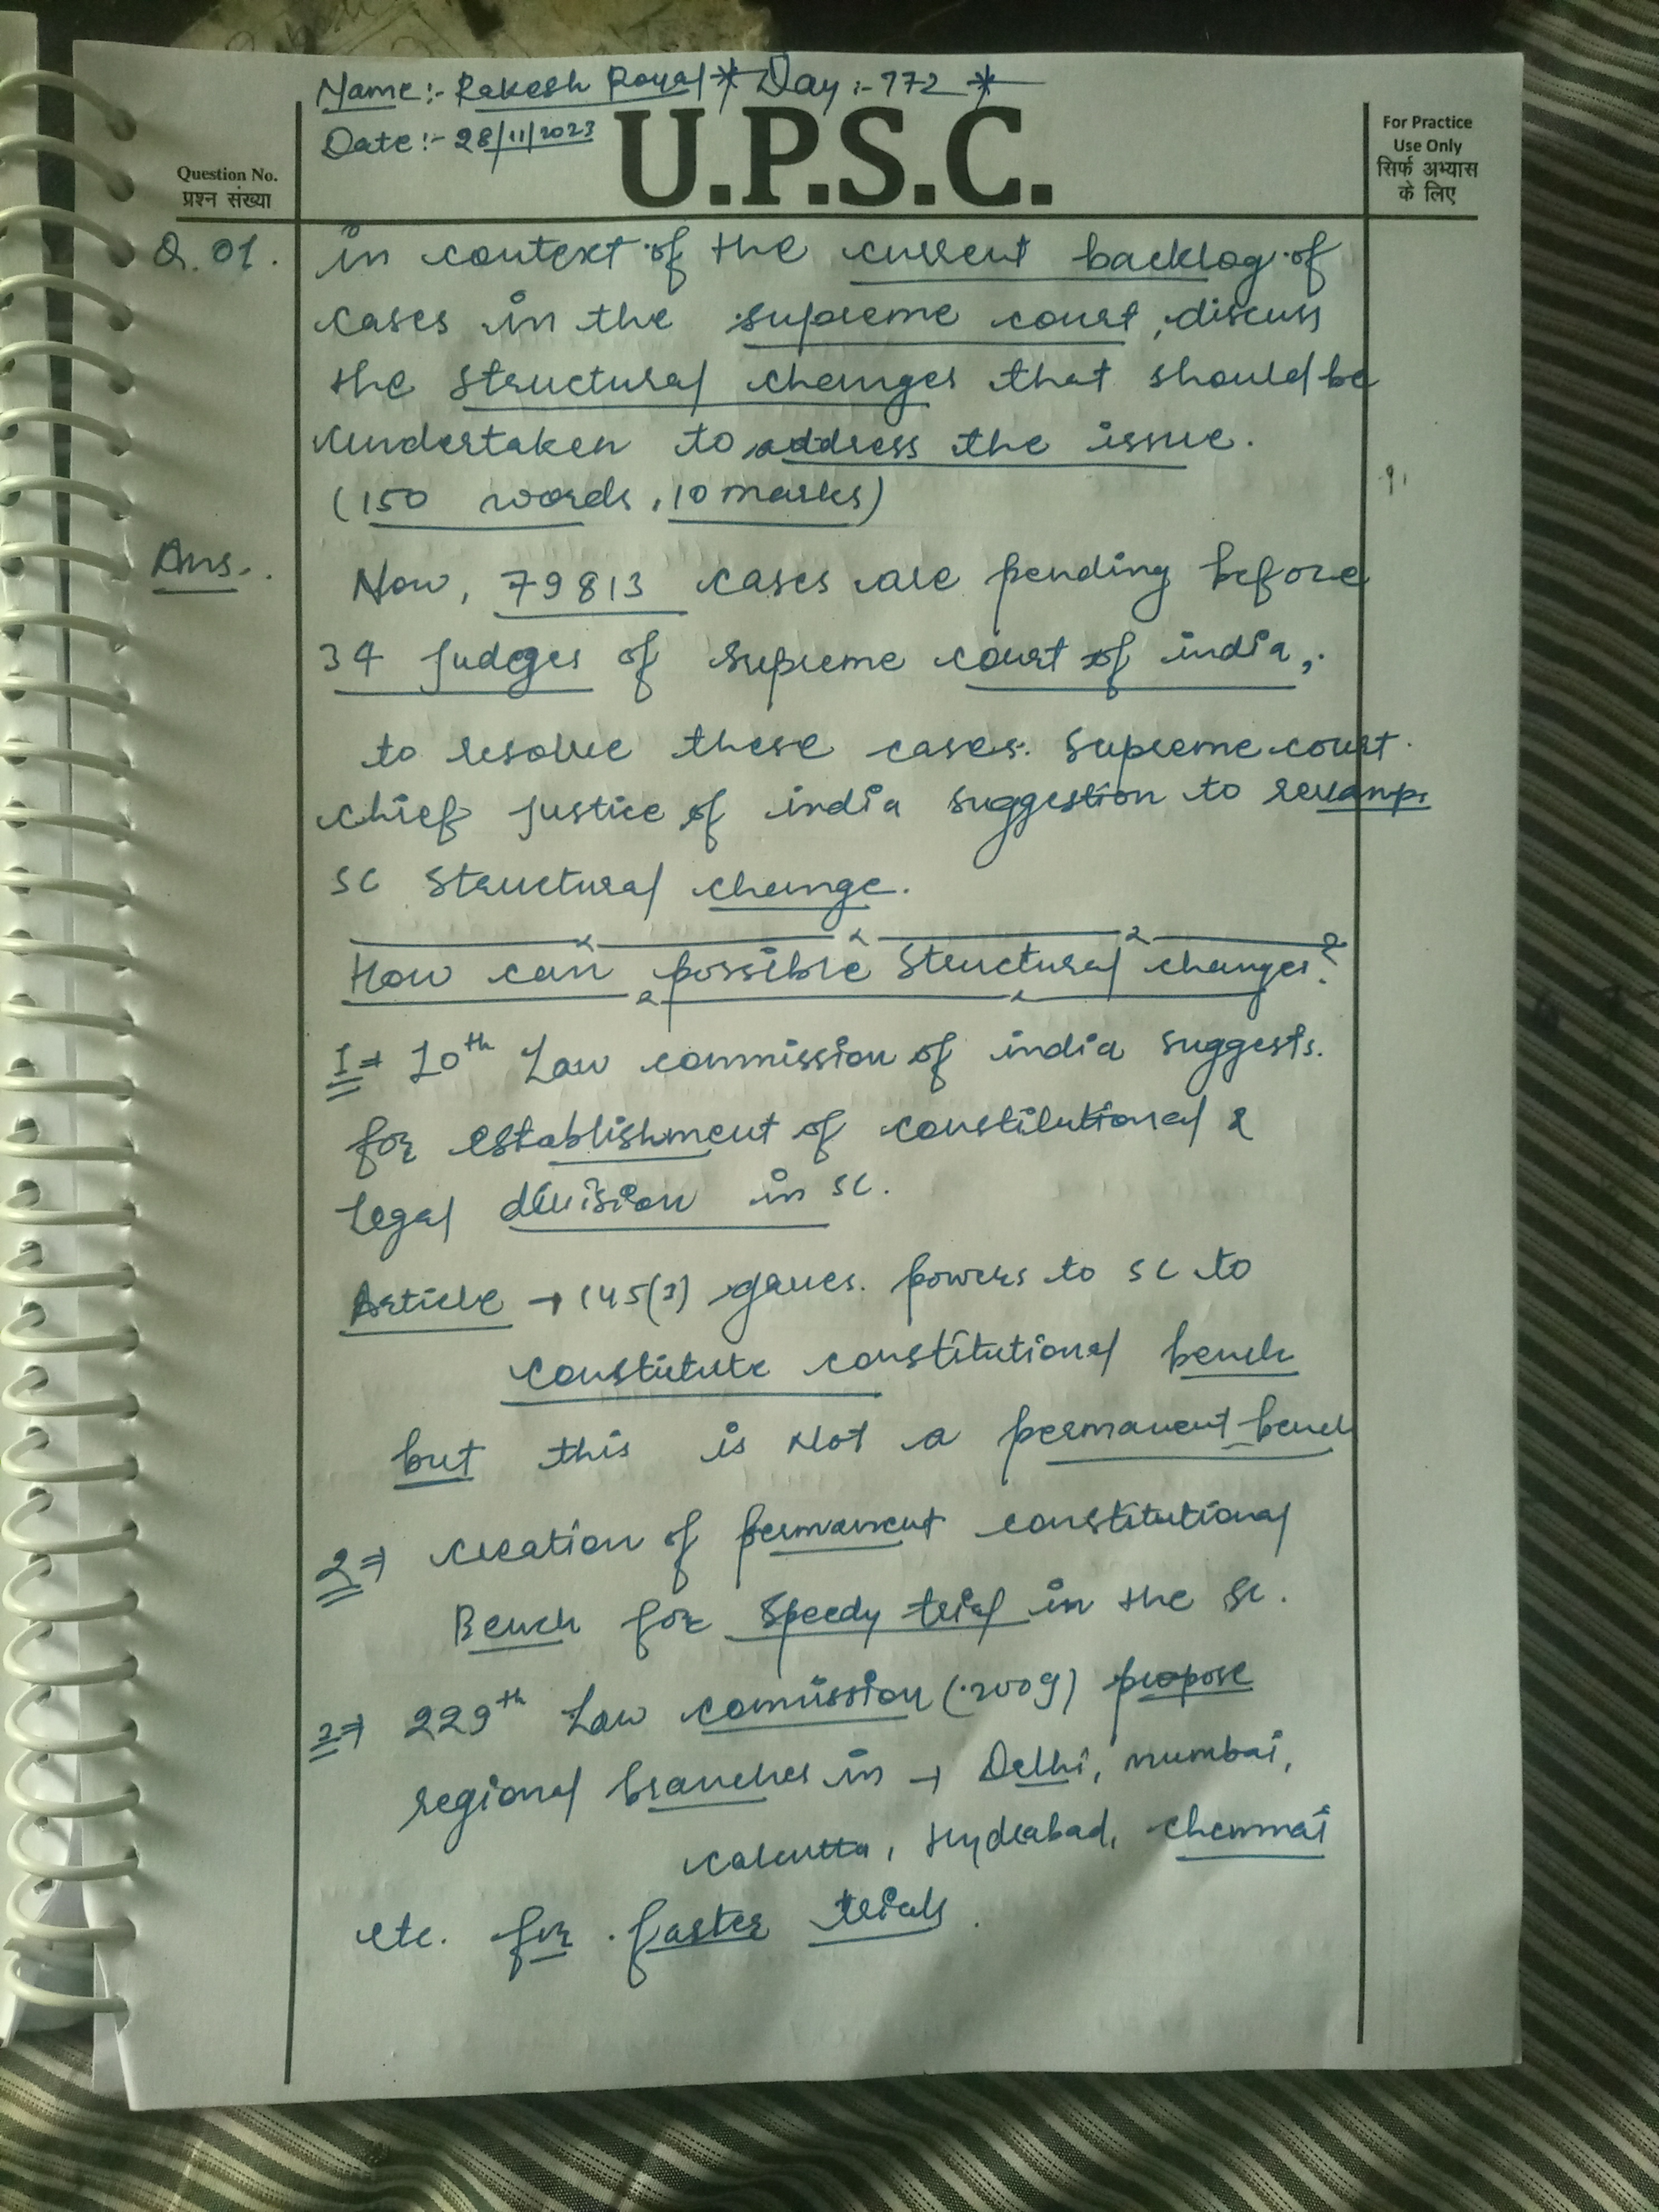 Name:- Rakesh Royal * Day :- 772 *
Date:- 28/11/2023
U.P.S.C.
Question No.
प्रश्न संख्या
For Practice
Use Only
सिर्फ अभ्यास
के लिए
Q. 01. in context of the current backlog of
cases in the supreme court, discuss
the structural changes that should be
undertaken to address the issue.
(150 words, 10 marks)
Ans. Now, 79813 cases are pending before
34 judges of supreme court of india,
to resolve these cases. supreme court
chief justice of india suggestion to revamp
SC structural change.
How can possible structural changes?
1⇒ 10th Law commission of india suggests.
for establishment of constitutional &
Legal division in SC.
Article → 145(3) gaves. powers to SC to
constitute constitutional bench
but this is Not a permanent bench
2⇒ creation of permanent constitutional
Bench for speedy trial in the SC.
3⇒ 229th Law comission (2009) propose
regional branches in → Delhi, mumbai,
calcutta, Hyderabad, chennai
etc. for faster trials.